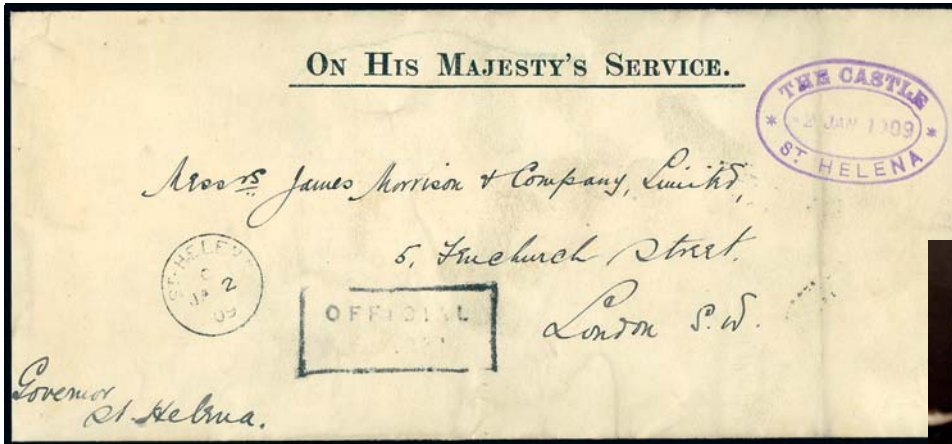 ON HIS MAJESTY'S SERVICE.
THE CASTLE
2 JAN 1909
ST. HELENA
Messrs James Morrison & Company, Limited,
5, Fenchurch Street.
London S.W.
ST. HELENA
C
JA 2
09
OFFICIAL
Governor
St. Helena.